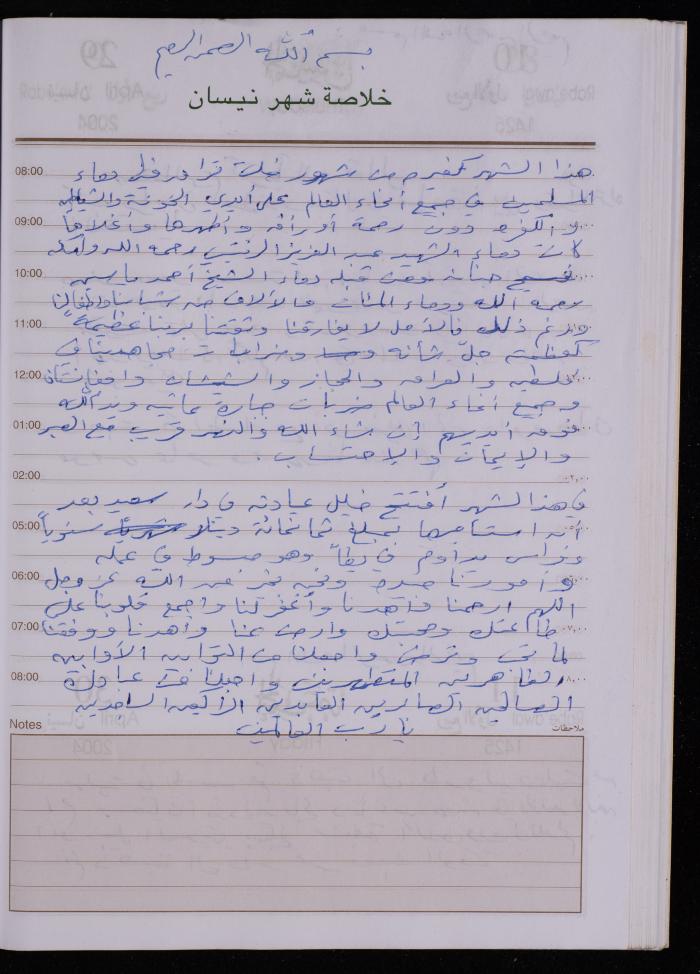 بسم الله الرحمن الرحيم
خلاصة شهر نيسان
08:00 هذا الشهر كغيره من شهور خلت تراق فيه دماء
المسلمين في جميع أنحاء العالم على أيدي الخونة والشياطين
09:00 والكفرة دون رحمة أو رأفة وأطهرها وأغلاها
كانت دماء الشهيد عبد العزيز الرنتيسي رحمه الله وأسكنه
10:00 فسيح جنانه ومن قبله دماء الشيخ أحمد ياسين
رحمه الله ودماء المئات والآلاف من شبابنا وأطفالنا
11:00 ورغم ذلك فالأمل لا يفارقنا وثقتنا بربنا عظيمة
كعظمته جلّ شأنه وضربات مجاهدينا في
12:00 فلسطين والعراق والحجاز والشيشان وافغانستان
وجميع أنحاء العالم ضربات جبارة ويد الله
01:00 فوق أيديهم إن شاء الله والنصر قريب مع الصبر
والإيمان والإحتساب .
02:00
في هذا الشهر أفتتح خليل عيادته في دار سعيد بعد
05:00 أنه استأجرها بمبلغ ثمانمائة دينار سنوياً
وفراس يداوم وهو مبسوط في عمله
06:00 وامورنا ونحن بخير من الله عز وجل
اللهم ارحمنا واهدنا وأغفر لنا واجمع قلوبنا على
07:00 طاعتك ومحبتك وارض عنا وأهدنا ووفقنا
لما تحب وترضى واجعلنا من التوابين الأوابين
08:00 الطاهرين المتطهرين واجعلنا من عبادك
الصالحين الصابرين العابدين الراكعين الساجدين
يا رب العالمين
Notes ملاحظات